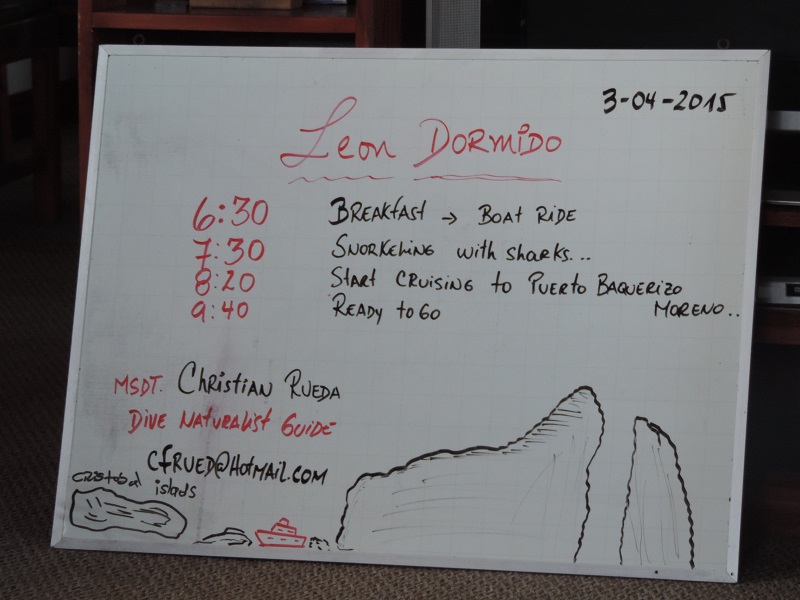 3-04-2015
Leon DORMIDO
6:30 BREAKfast → BOAT RIDE
7:30 SNORKELING with sharks...
8:20 START CRUISING to PUERTO BAQUERIZO
MORENO..
9:40 READY to GO
MSDT. Christian RUEDA
DIVE NATURALIST GUIDE
CFRUED@HOTMAIL.COM
cristobal
islads